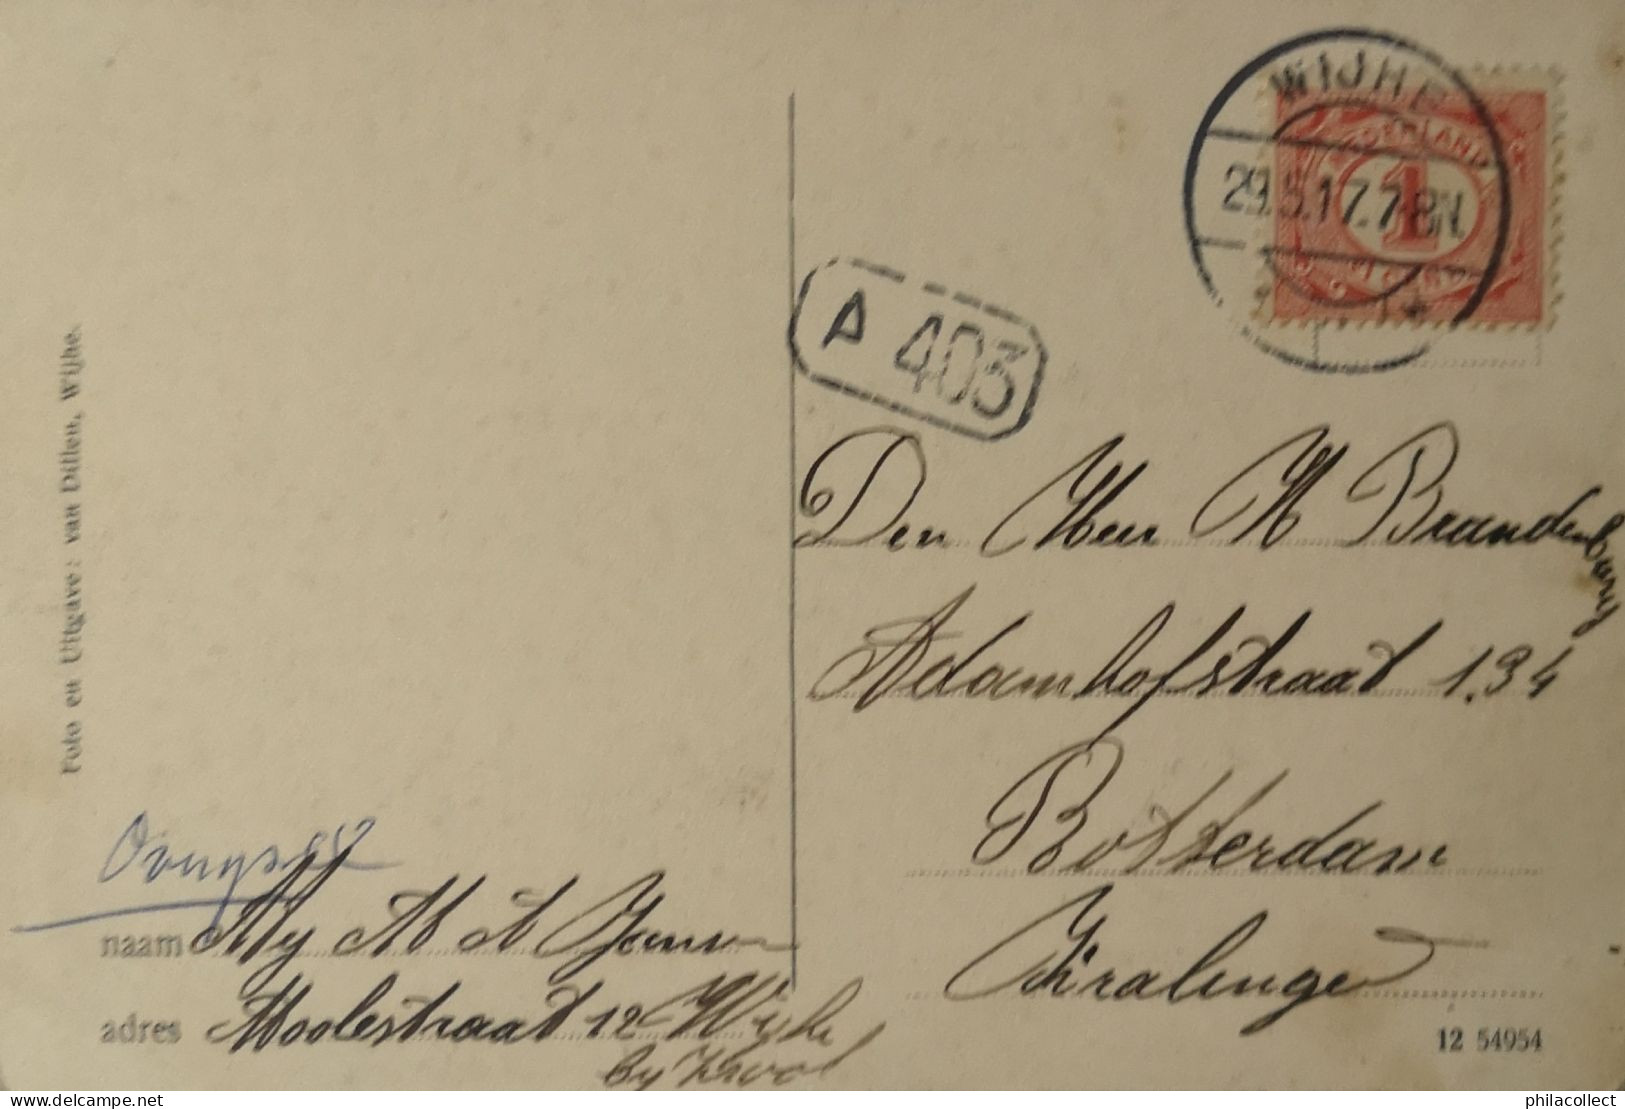 WIJHE
29.5.17.7-8N.
NEDERLAND
1
CENT
A 403
Den Heer H Brandenburg
Adamhofstraat 134
Rotterdam
Kralinge
Foto en Uitgave: van Dillen, Wijhe.
naam Mej A M A Jansen
adres Moolestraat 12 Wijhe
by Zwol
12 54954
delcampe.net
philacollect